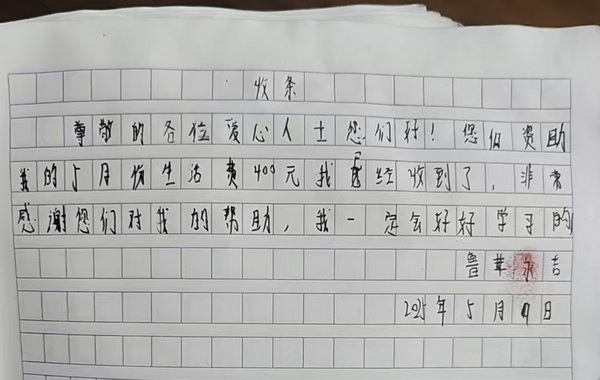 收条
尊敬的各位爱心人士您们好！您们资助
我的5月份生活费400元我已经收到了，非常
感谢您们对我的帮助，我一定会好好学习的
鲁苹永吉
2025年5月9日